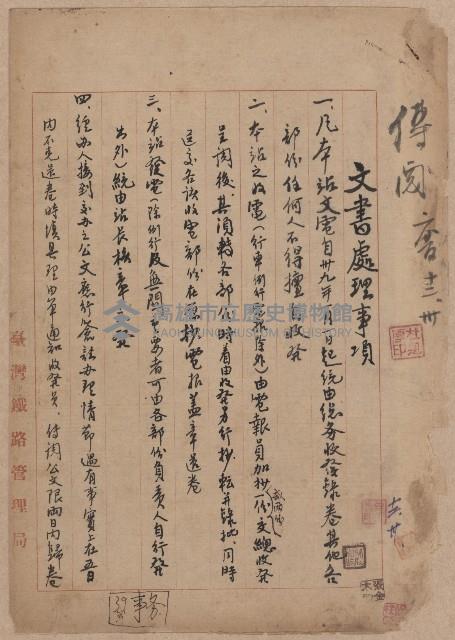 傳閱 卅
文書處理事項
一、凡本站文電自卅九年 月 日起統由總務收發錄卷其他各
部份任何人不得擅 收發
二、本站之收電(行車例行 除外)由電報員加抄一份 交總收發
呈閱後其須轉各部份時看由收發另行抄転并錄批同時
送交各該收電部份在 抄電報蓋章退卷
三、本站發電(除例行及無關 要者可由各部份負責人自行發
出外)統由站長核章 發
四、經办人接到交办之公文應行簽註办理情節 過有事實上在五日
內不克送卷時填具理由單通知收發員、傳閱公文限兩日內歸卷
臺灣鐵路管理局
高雄市立歷史博物館
KAOHSIUNG MUSEUM OF HISTORY